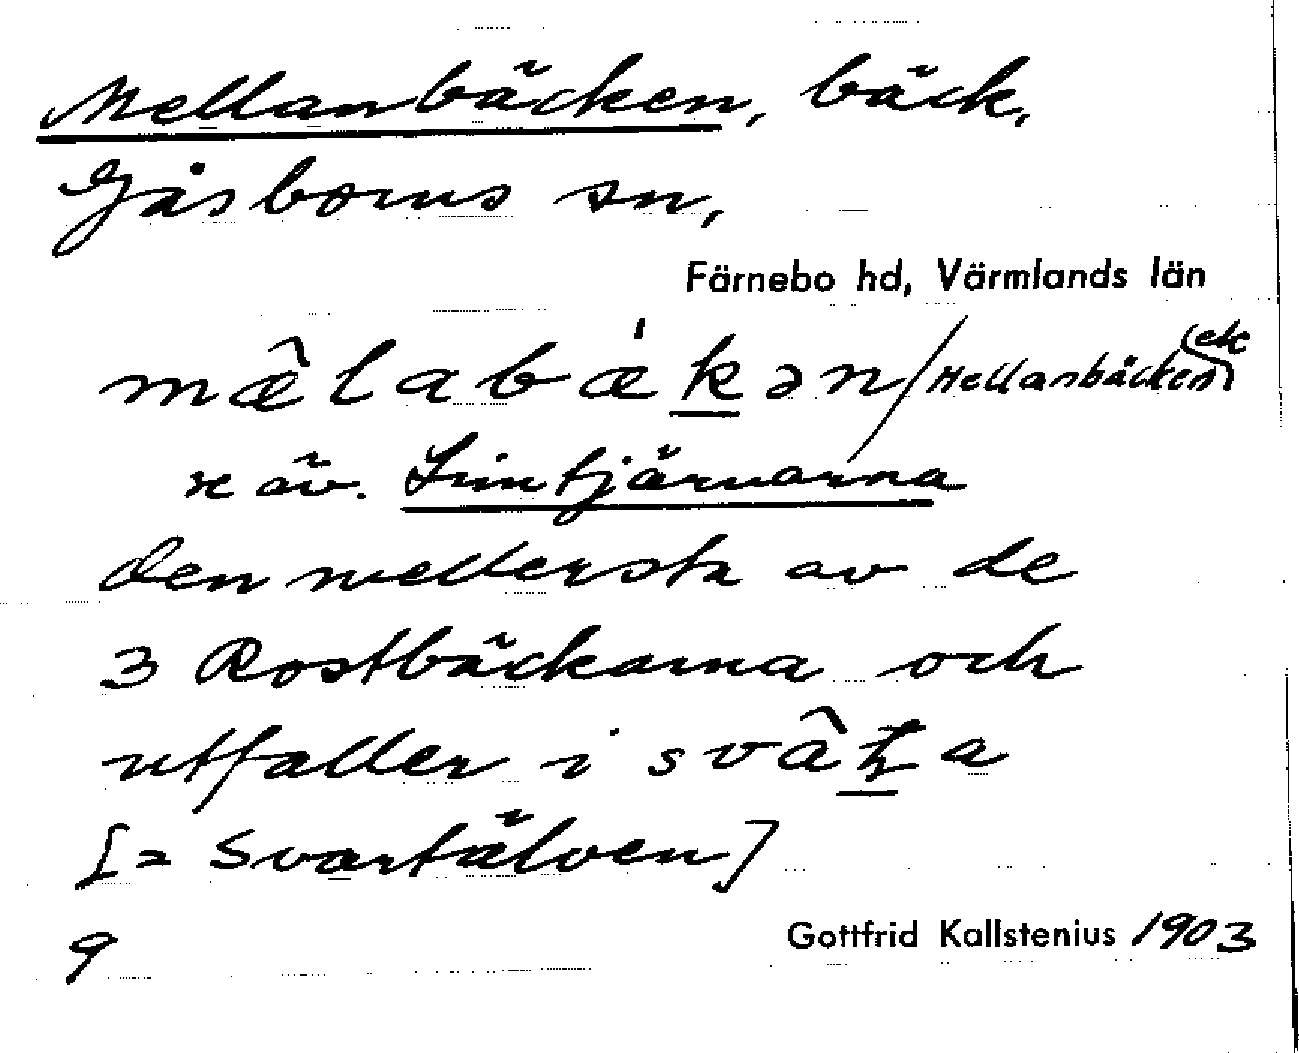 Mellanbäcken, bäck,
Gåsborns sn,
Färnebo hd, Värmlands län
mæ̂labǽkən / Mellanbäcken (ek)
se äv. Limtjärnarna
den mellersta av de
3 Rostbäckarna och
utfaller i svâʈa
[= Svartälven]
9 Gottfrid Kallstenius 1903